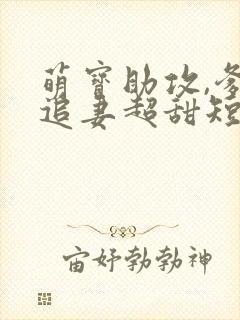 萌宝助攻,爹
追妻超甜短
宙好勃勃神